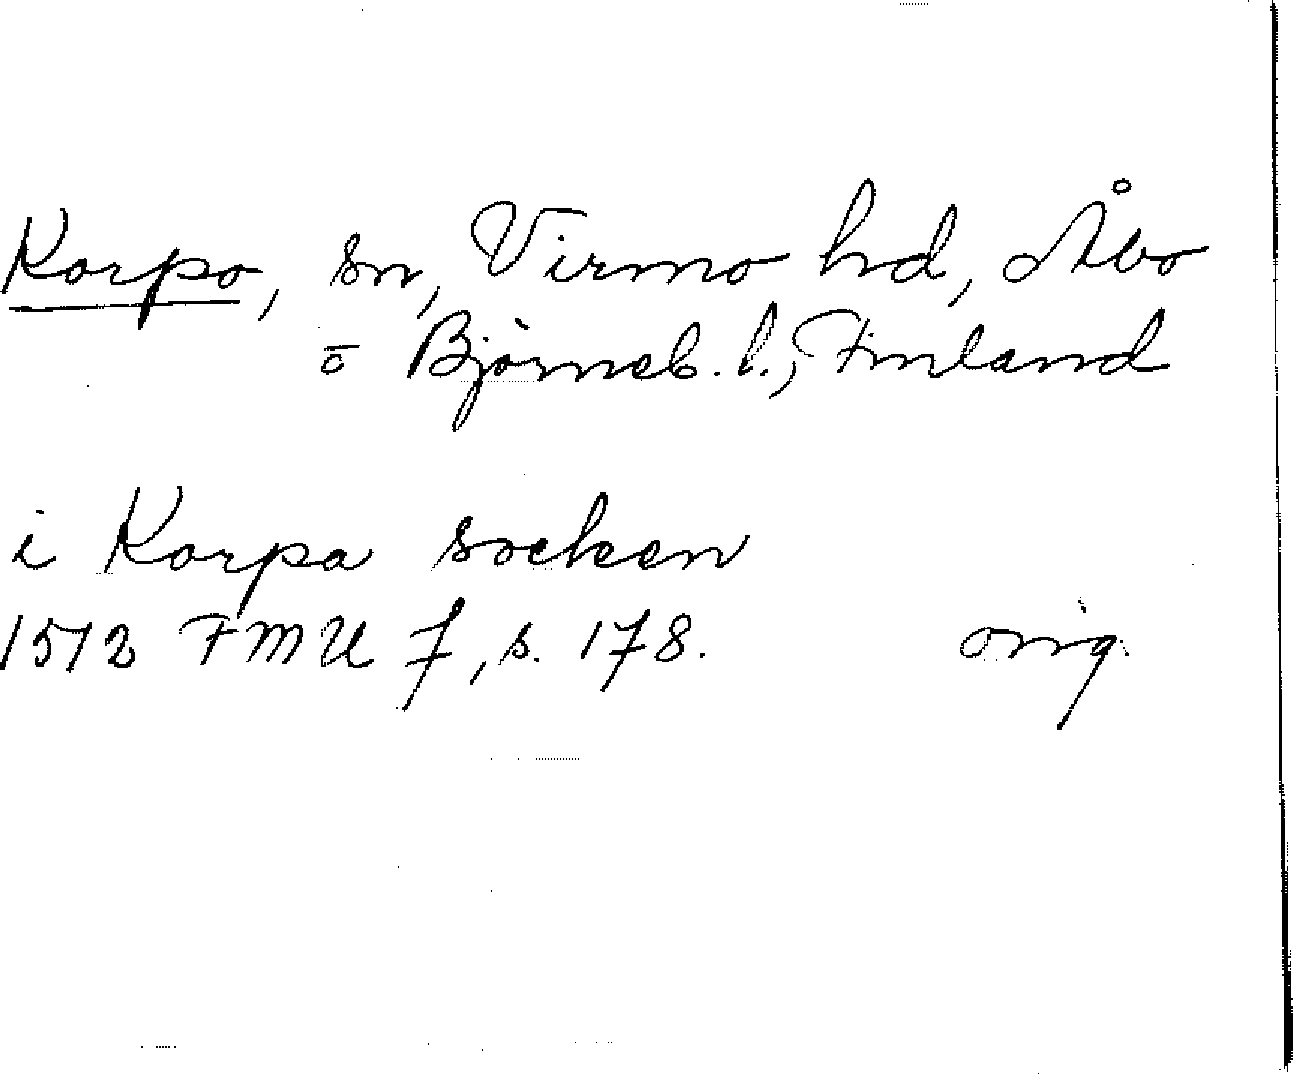 Korpo, sn, Virmo hd, Åbo
o Björneb. l., Finland
i Korpa socken
1512 FMU 7, s. 178. orig.